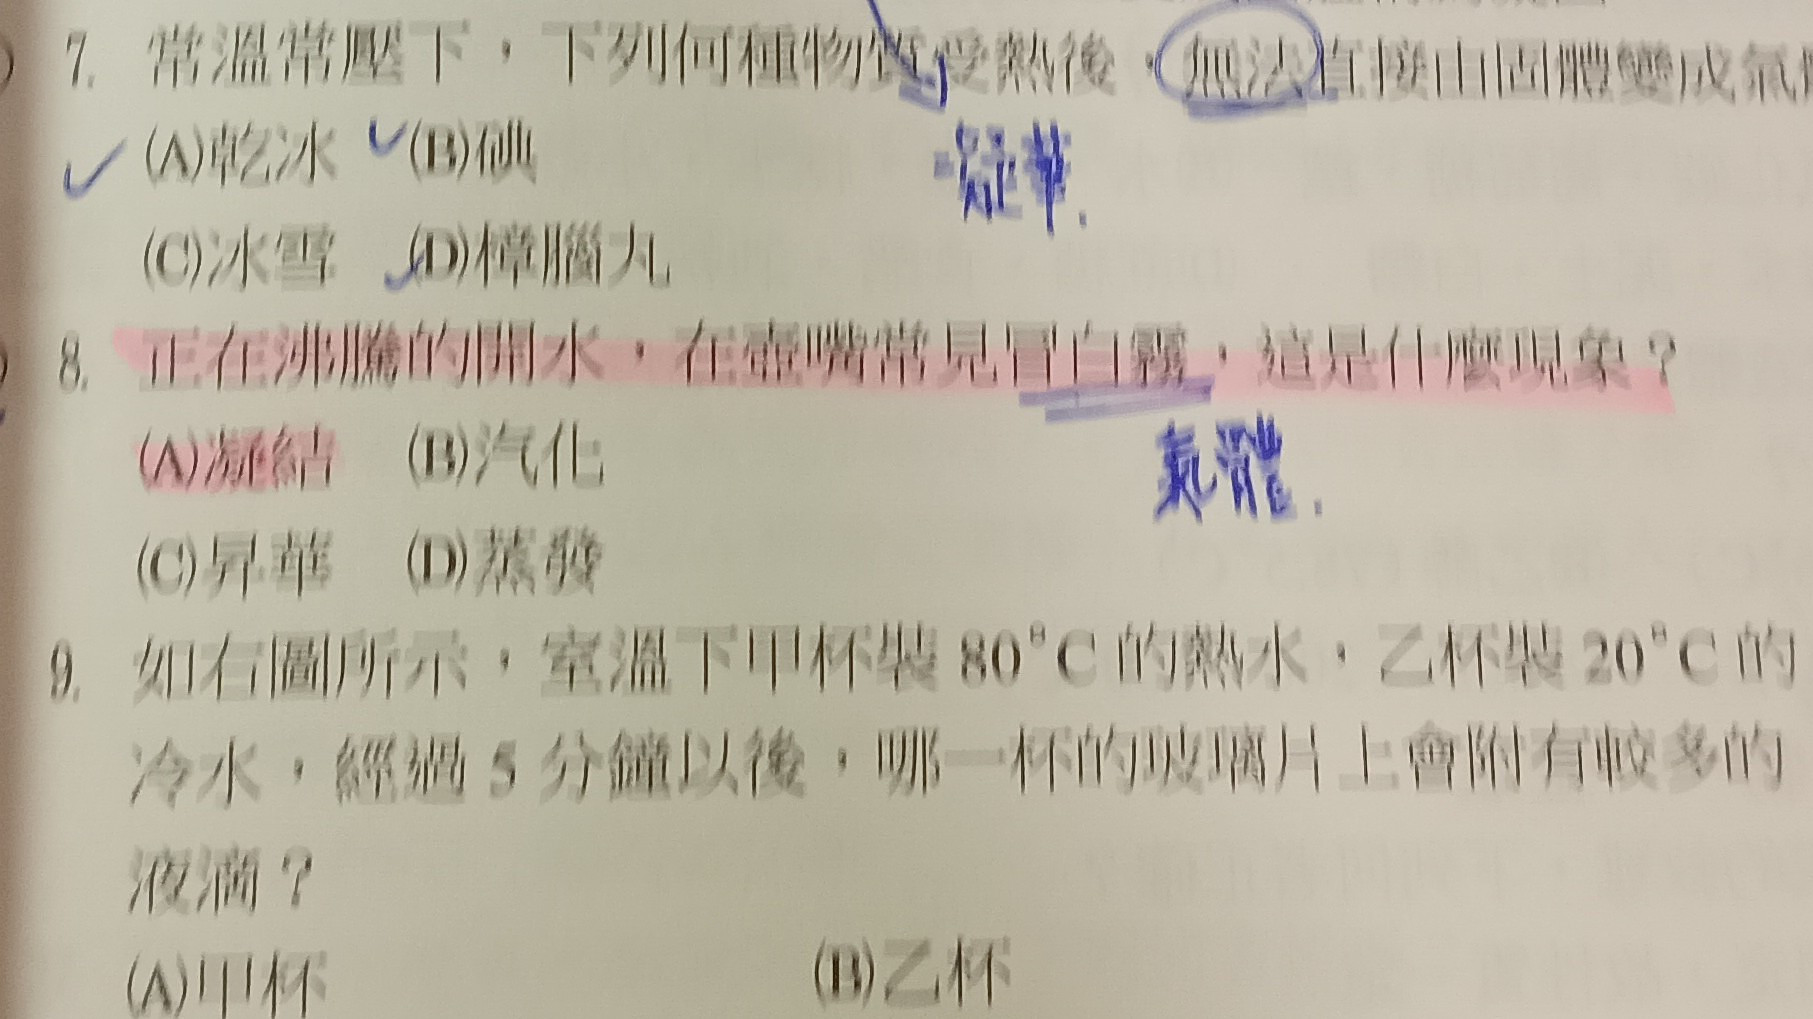 7. 常溫常壓下，下列何種物質受熱後，無法直接由固體變成氣
(A)乾冰 (B)碘
凝華.
(C)冰雪 (D)樟腦丸
8. 正在沸騰的開水，在壺嘴常見冒白霧，這是什麼現象？
(A)凝結 (B)汽化
氣體.
(C)昇華 (D)蒸發
9. 如右圖所示，室溫下甲杯裝 80°C 的熱水，乙杯裝 20°C 的
冷水，經過 5 分鐘以後，哪一杯的玻璃片上會附有較多的
液滴？
(A)甲杯 (B)乙杯